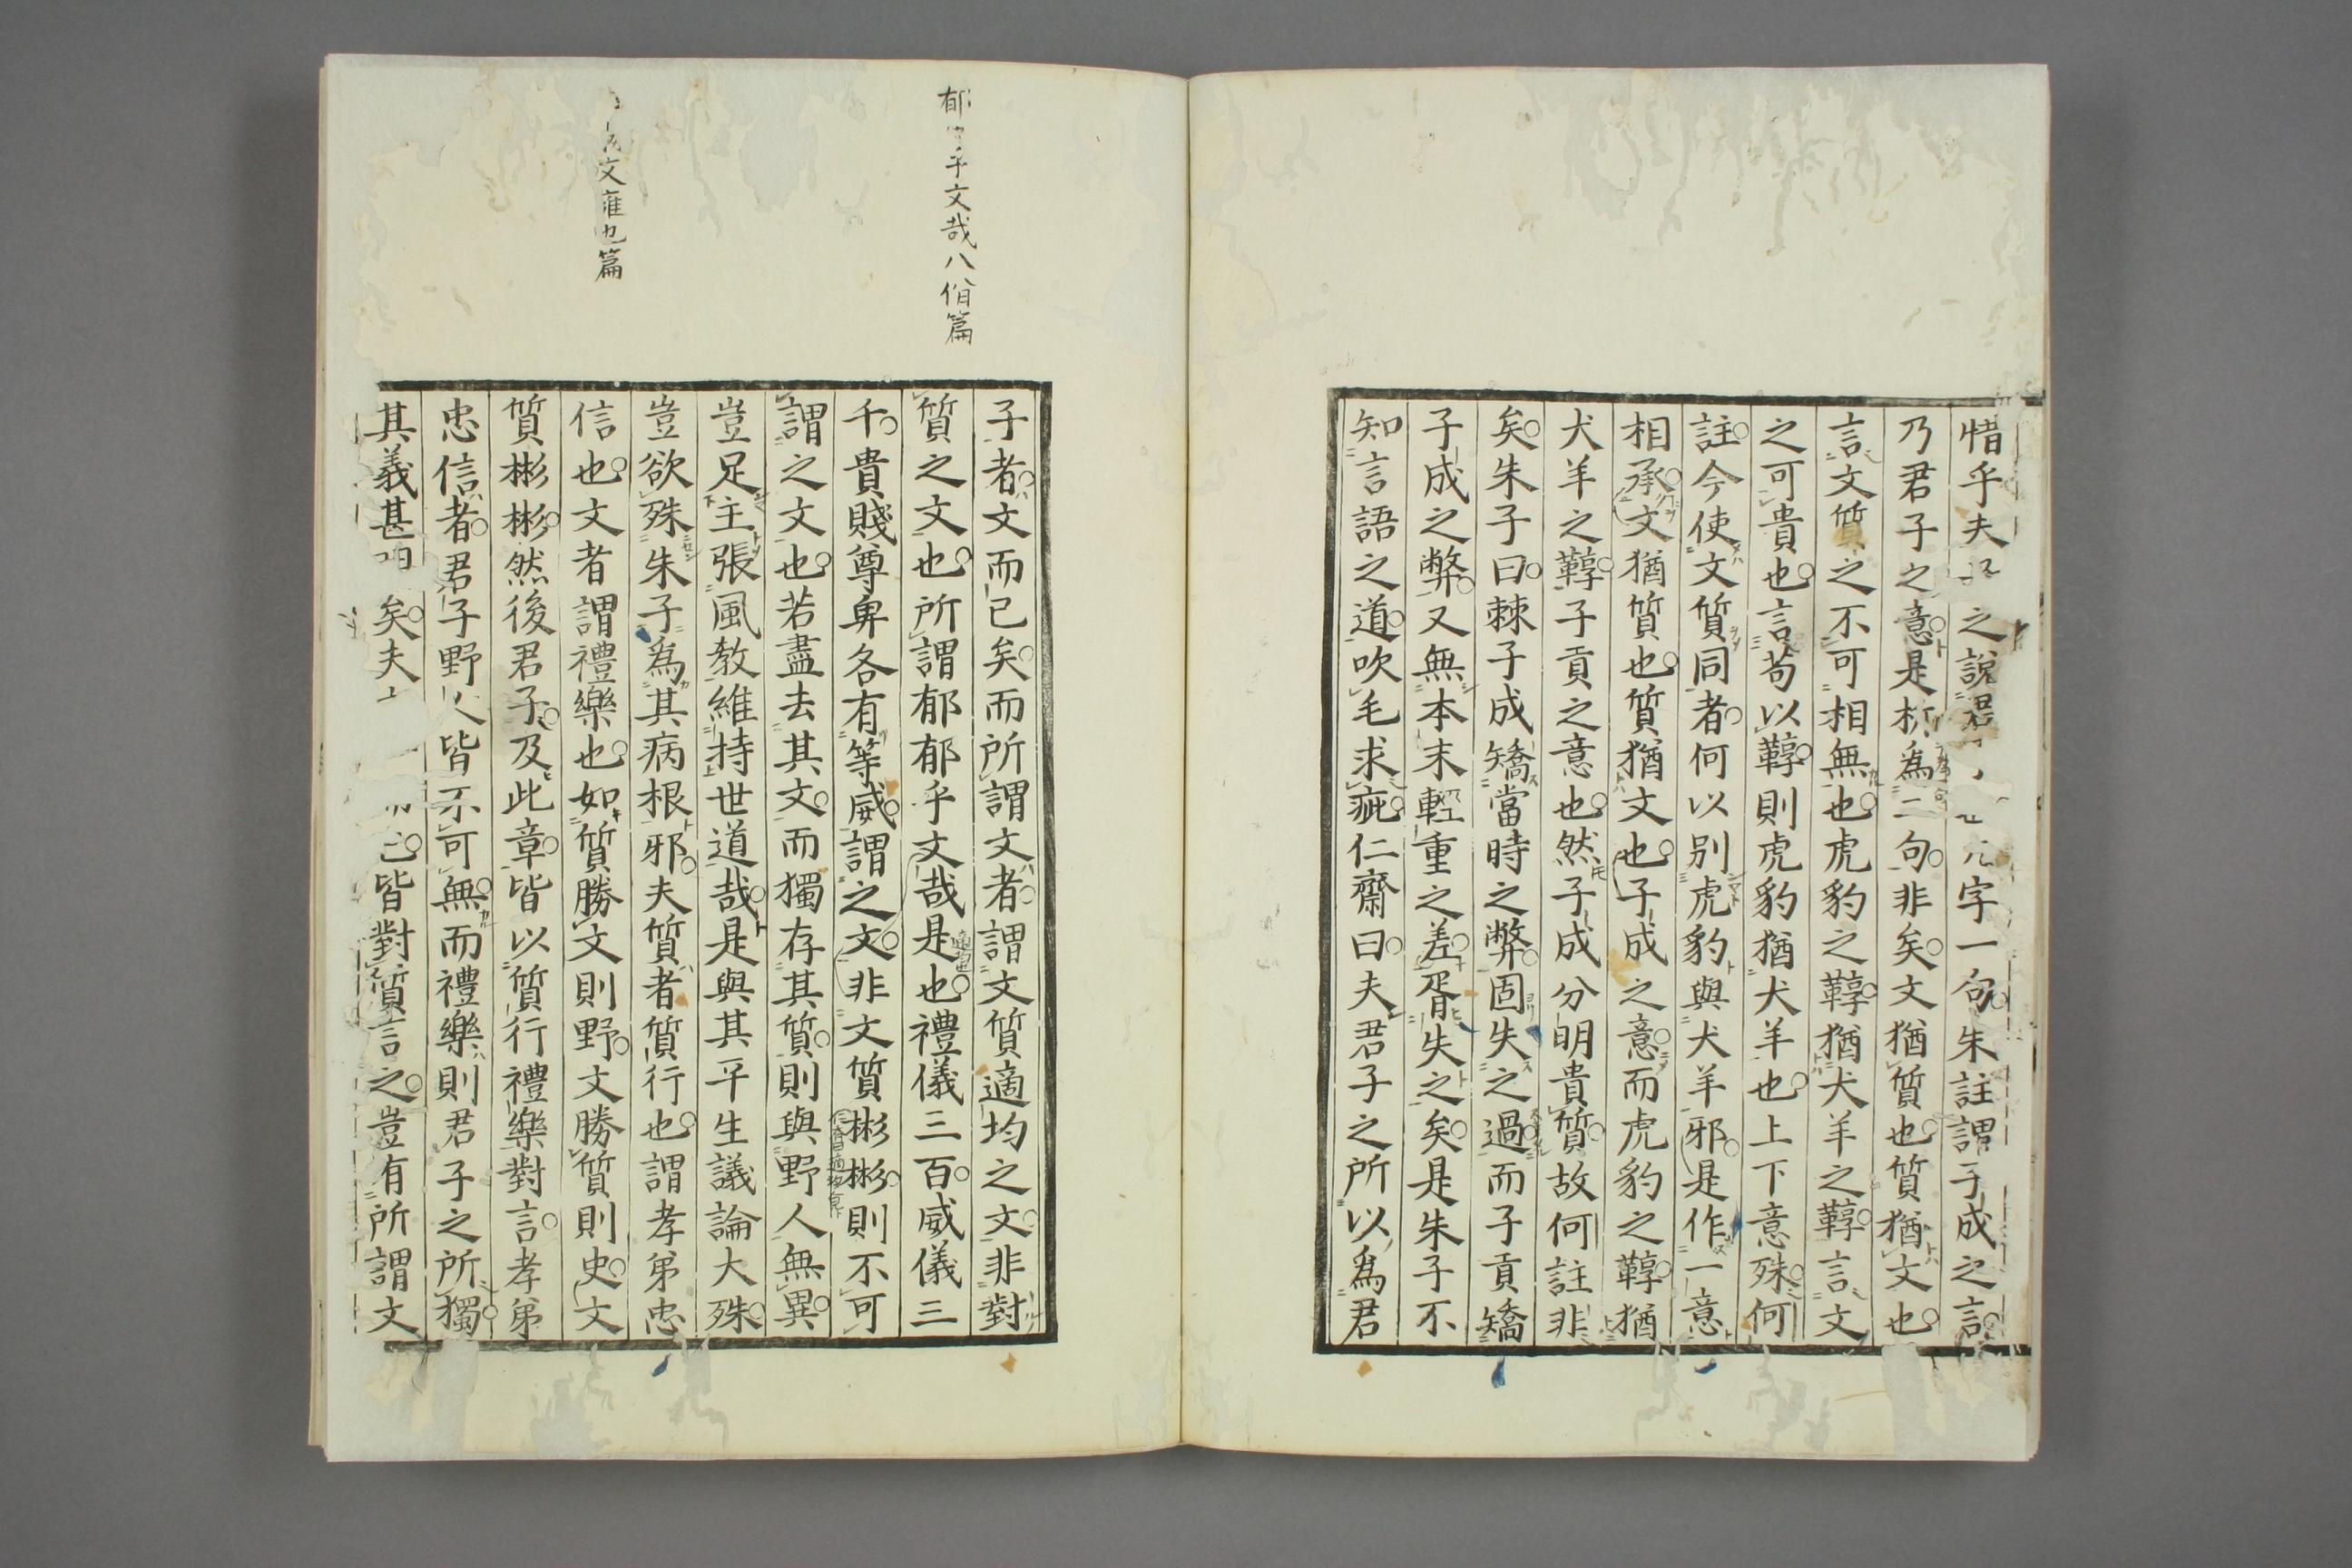 惜乎夫之說君字一句朱註謂子成之言
乃君子之意是析爲二句非矣文猶質也質猶文也
言文質之不可相無也虎豹之鞹猶犬羊之鞹言文
之可貴也言苟以鞹則虎豹猶犬羊也上下意殊何
註今使文質同者何以別虎豹與犬羊邪是作一意
相承文猶質也質猶文也子成之意而虎豹之鞹猶
犬羊之鞹子貢之意也然子成分明貴質故何註非
矣朱子曰棘子成矯當時之弊固失之過而子貢矯
子成之弊又無本末輕重之差胥失之矣是朱子不
知言語之道吹毛求疵仁齋曰夫君子之所以爲君
郁乎文哉八佾篇
文雍也篇
子者文而已矣而所謂文者謂文質適均之文非對
質之文也所謂郁郁乎文哉是也禮儀三百威儀三
千貴賤尊卑各有等威謂之文非文質彬彬則不可
謂之文也若盡去其文而獨存其質則與野人無異
豈足主張風敎維持世道哉是與其平生議論大殊
豈欲殊朱子爲其病根邪夫質者質行也謂孝弟忠
信也文者謂禮樂也如質勝文則野文勝質則史文
質彬彬然後君子及此章皆以質行禮樂對言孝弟
忠信者君子野人皆不可無而禮樂則君子之所獨
其義甚矣夫皆對質言之豈有所謂文